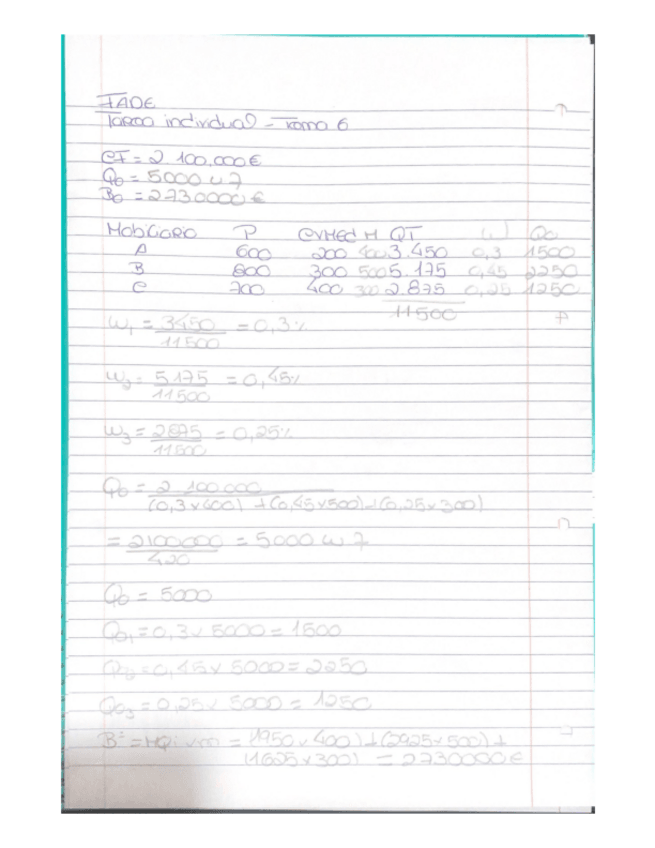 FADE
Tarea individual - Tema 6
CF = 2 100.000 €
Q0 = 5000 u 7
B0 = 2730000 €
Mobiliario P CVMed M QT W Q0
A 600 200 400 3.450 0,3 1500
B 800 300 500 5.175 0,45 2250
C 700 400 300 2.875 0,25 1250
11500
W1 = 3450 / 11500 = 0,3%
W2 = 5175 / 11500 = 0,45%
W3 = 2875 / 11500 = 0,25%
Q0 = 2 100.000 / (0,3 x 400) + (0,45 x 500) + (0,25 x 300)
= 2100000 / 420 = 5000 u 7
Q0 = 5000
Q01 = 0,3 x 5000 = 1500
Q02 = 0,45 x 5000 = 2250
Q03 = 0,25 x 5000 = 1250
= (1950 x 400) + (2925 x 500) +
(1625 x 300) = 2730000 €